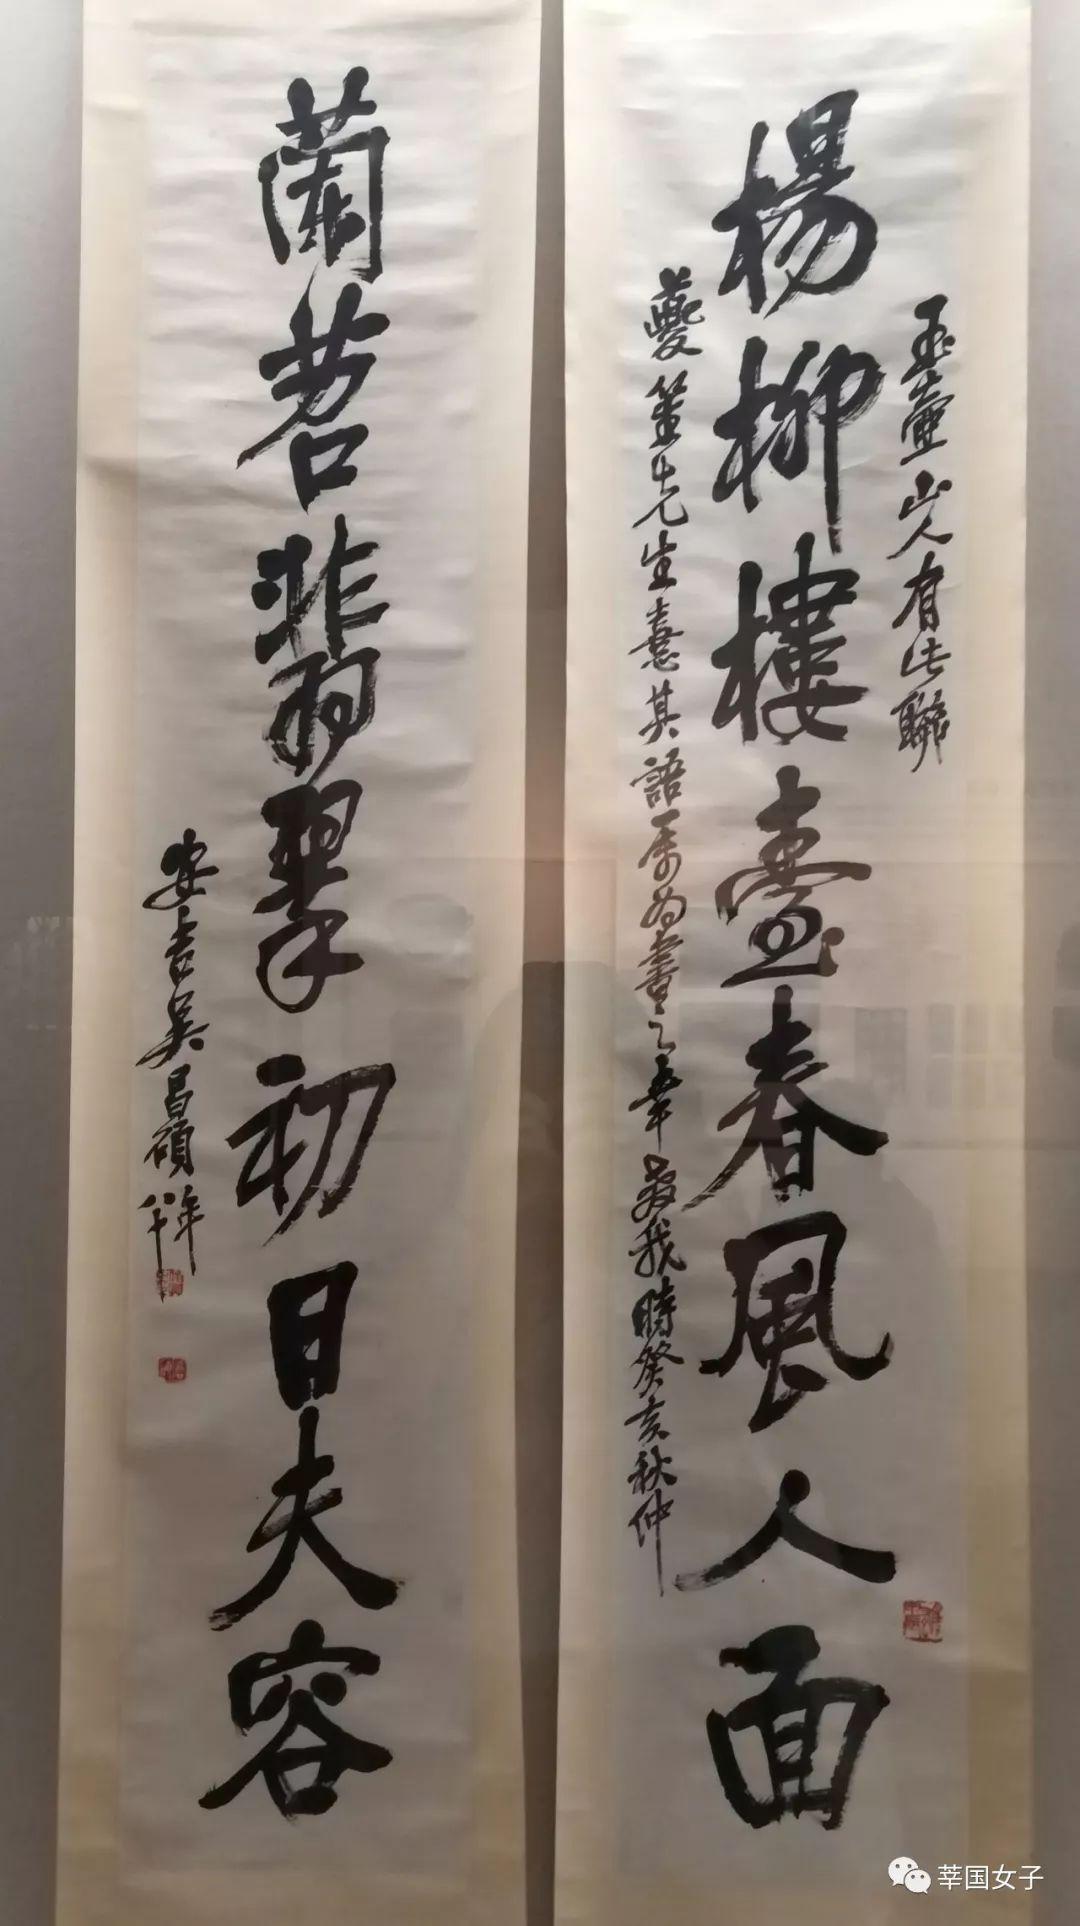 玉壷山人有此聯
楊柳樓臺春風人面
藥篴先生憙其語属為書之幸教我時癸亥秋仲
蘭苕翡翠初日夫容
安吉吴昌碩年八十
莘国女子